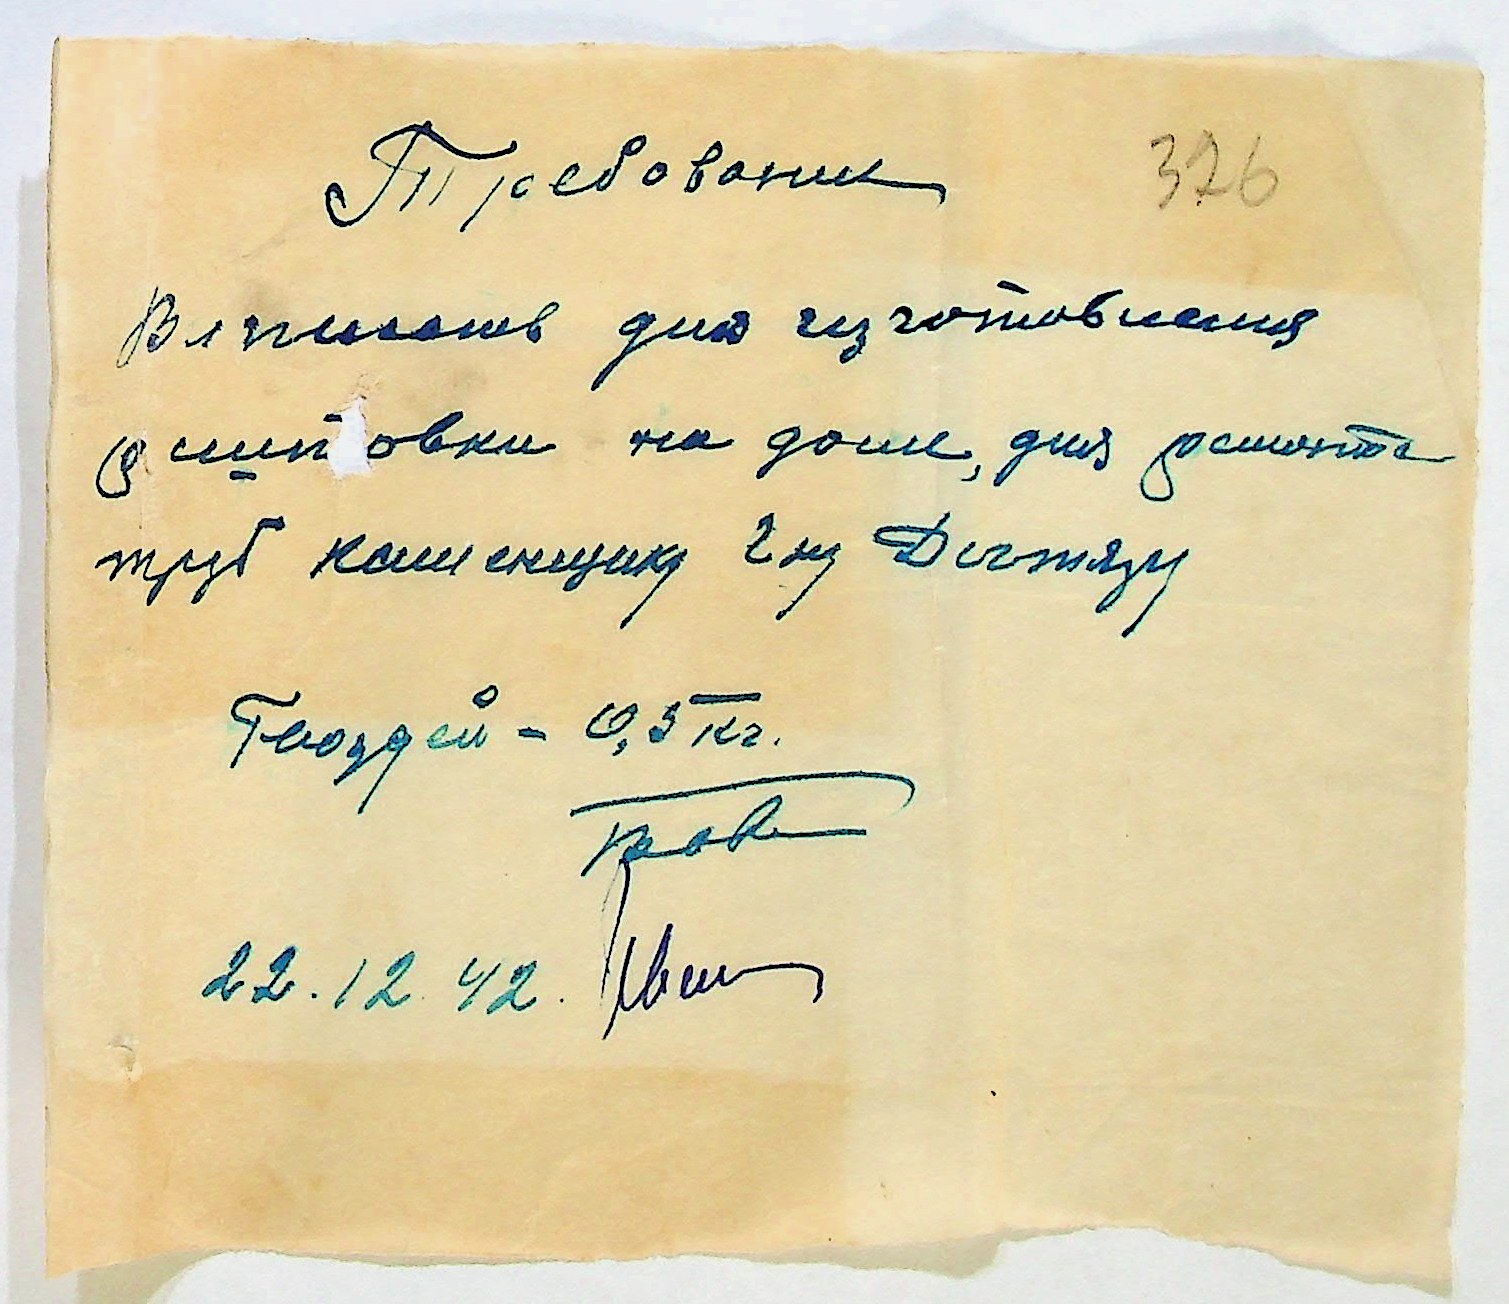 Требование
376
Выписать для изготовления
на доме, для ремонта
труб каменщику 2 му Дегтяру
Гвоздей - 0,5 кг.
22.12.42.